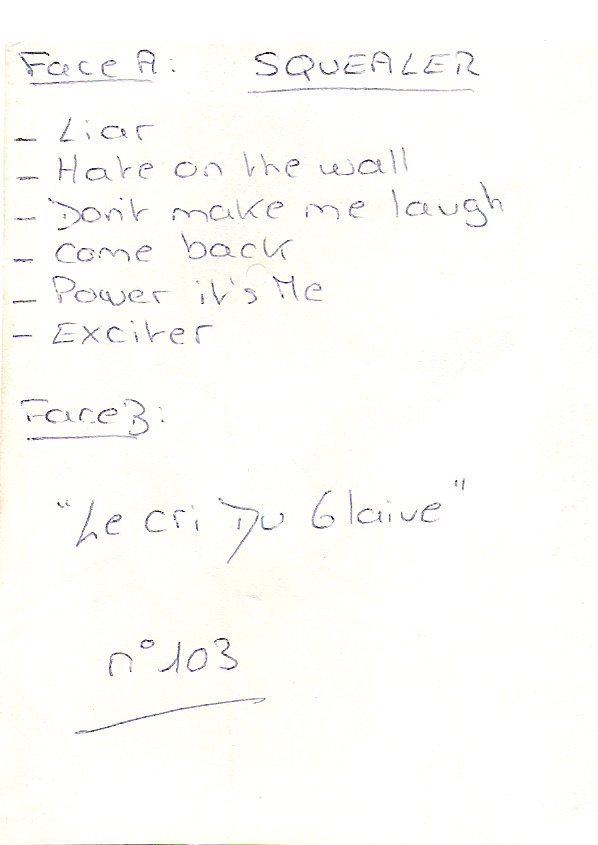 Face A: SQUEALER
- Liar
- Hate on the wall
- Don't make me laugh
- Come back
- Power it's Me
- Exciter
Face B:
"Le cri Du Glaive"
n° 103